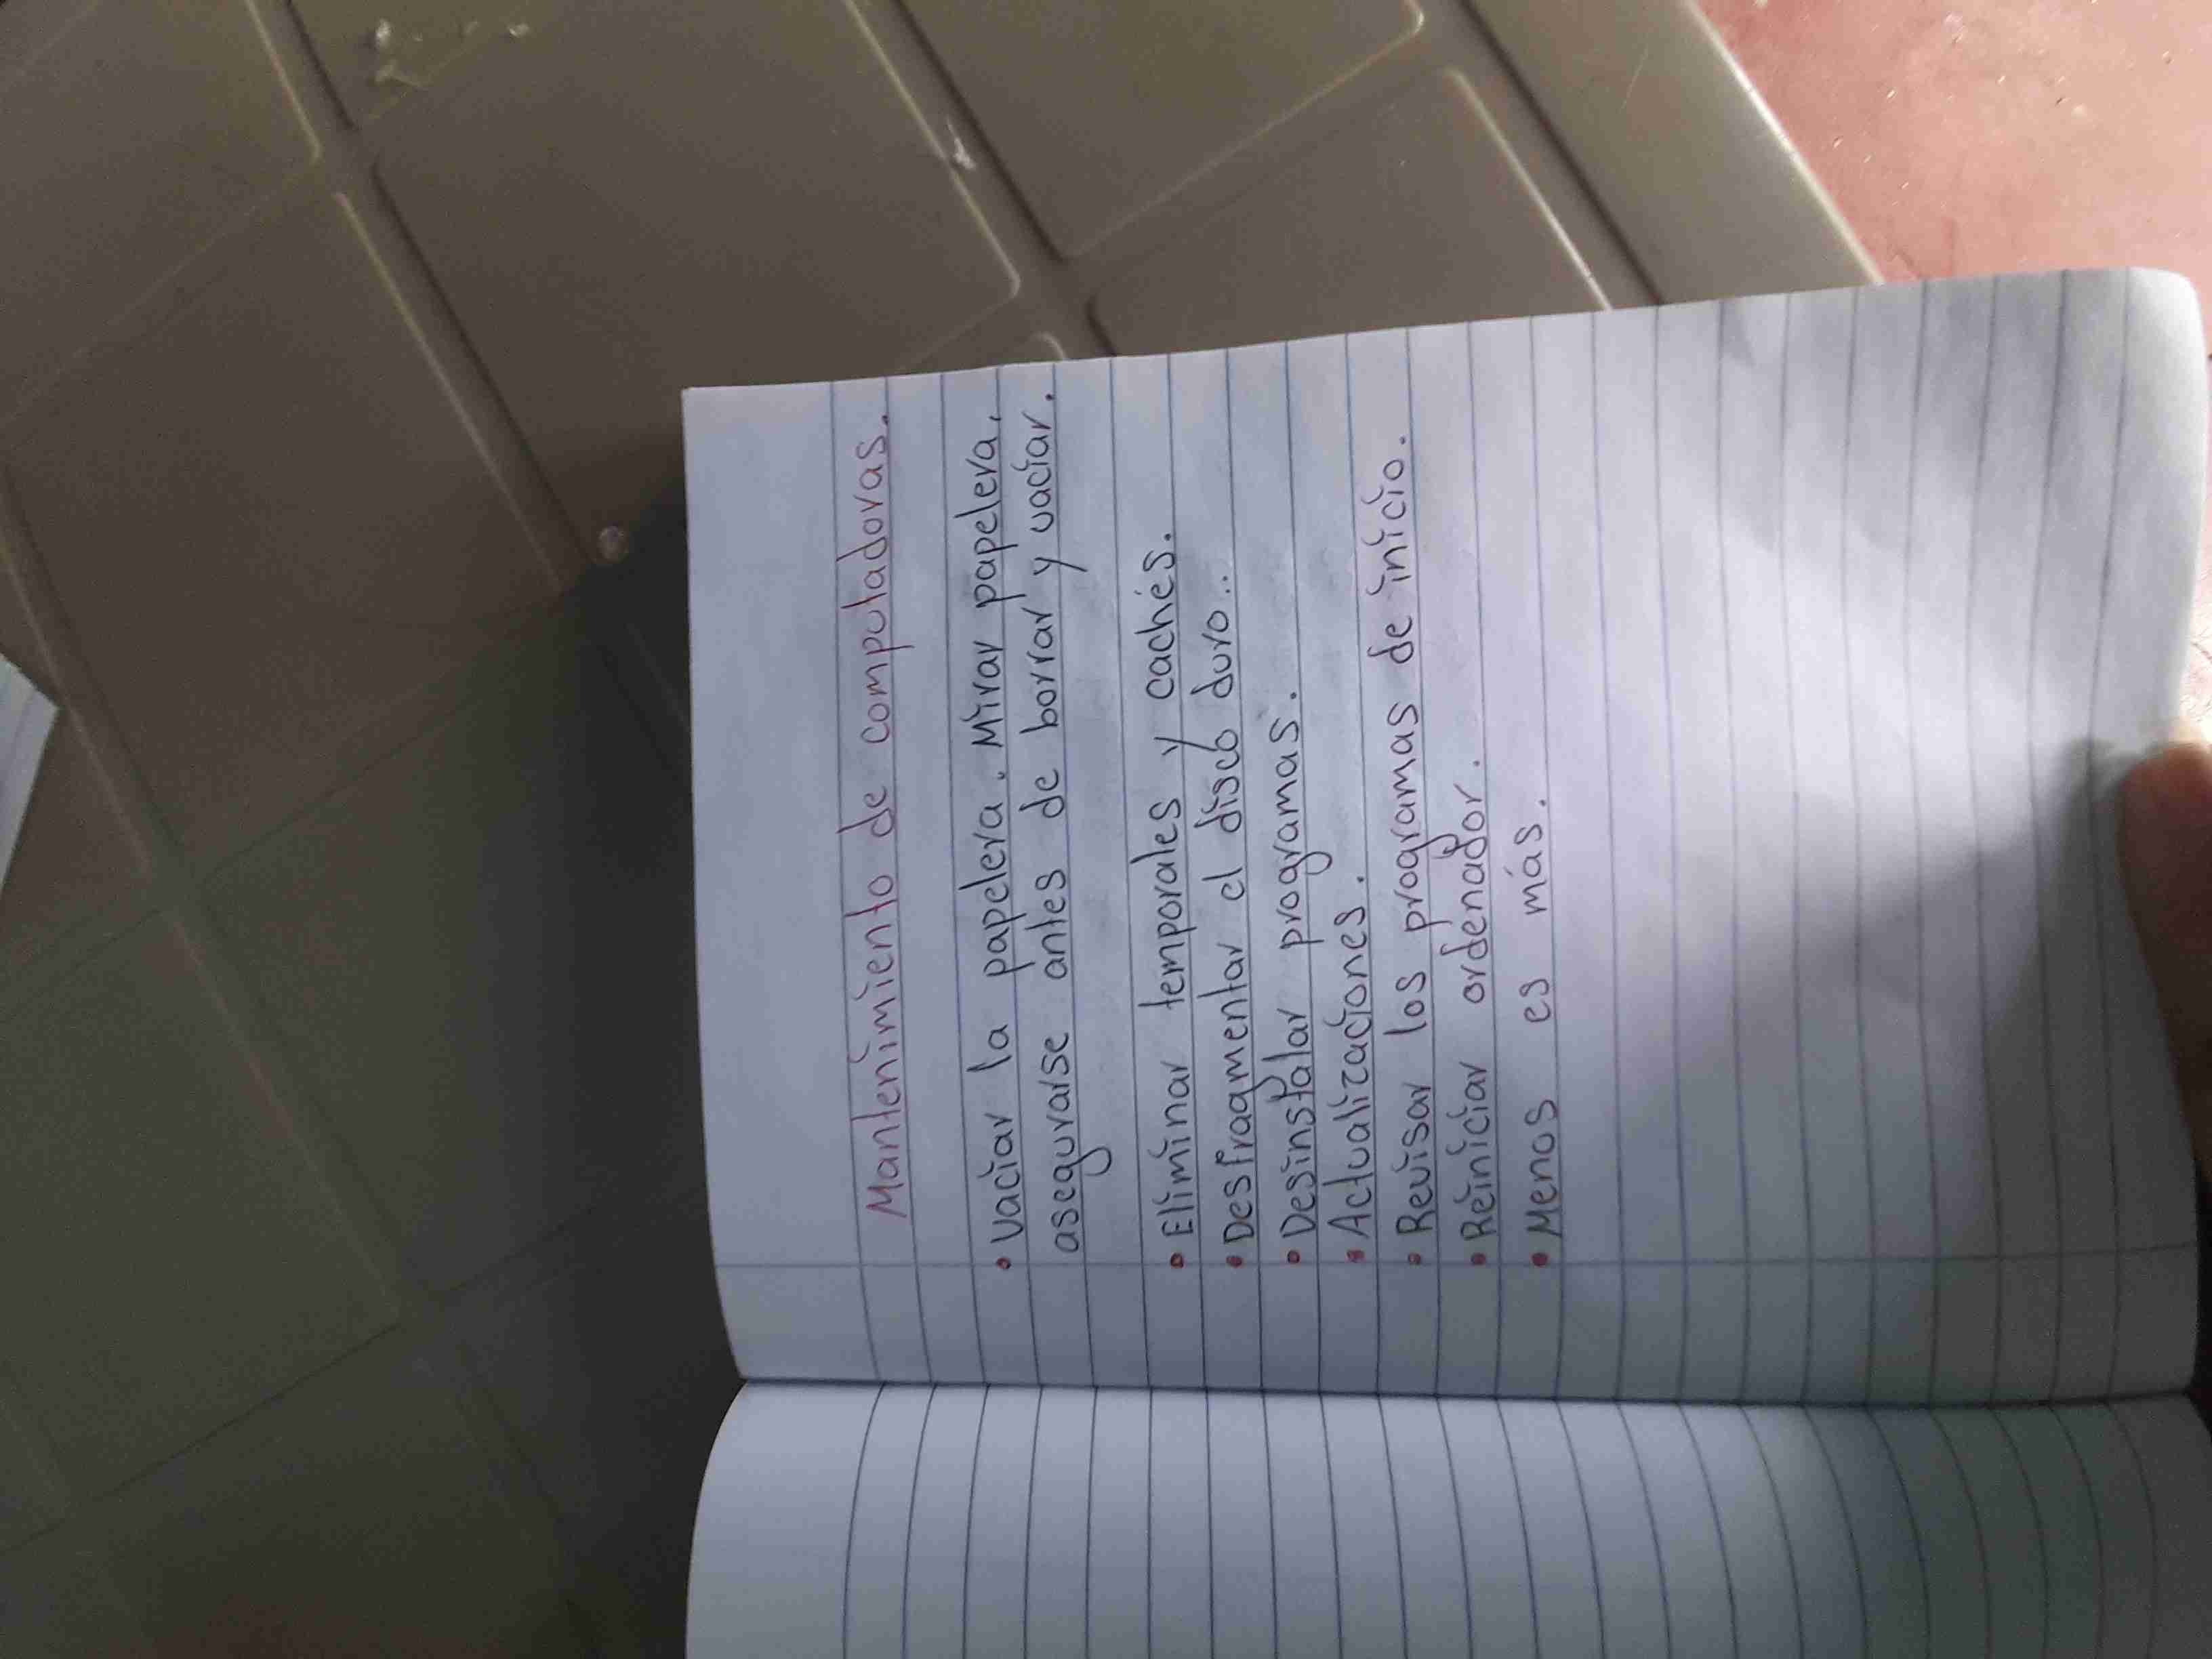 Mantenimiento de computadoras.
• Vaciar la papelera. Mirar papelera,
asegurarse antes de borrar y vaciar.
• Eliminar temporales y cachés.
• Desfragmentar el disco duro..
• Desinstalar programas.
• Actualizaciones.
• Revisar los programas de inicio.
• Reiniciar ordenador.
• Menos es más.